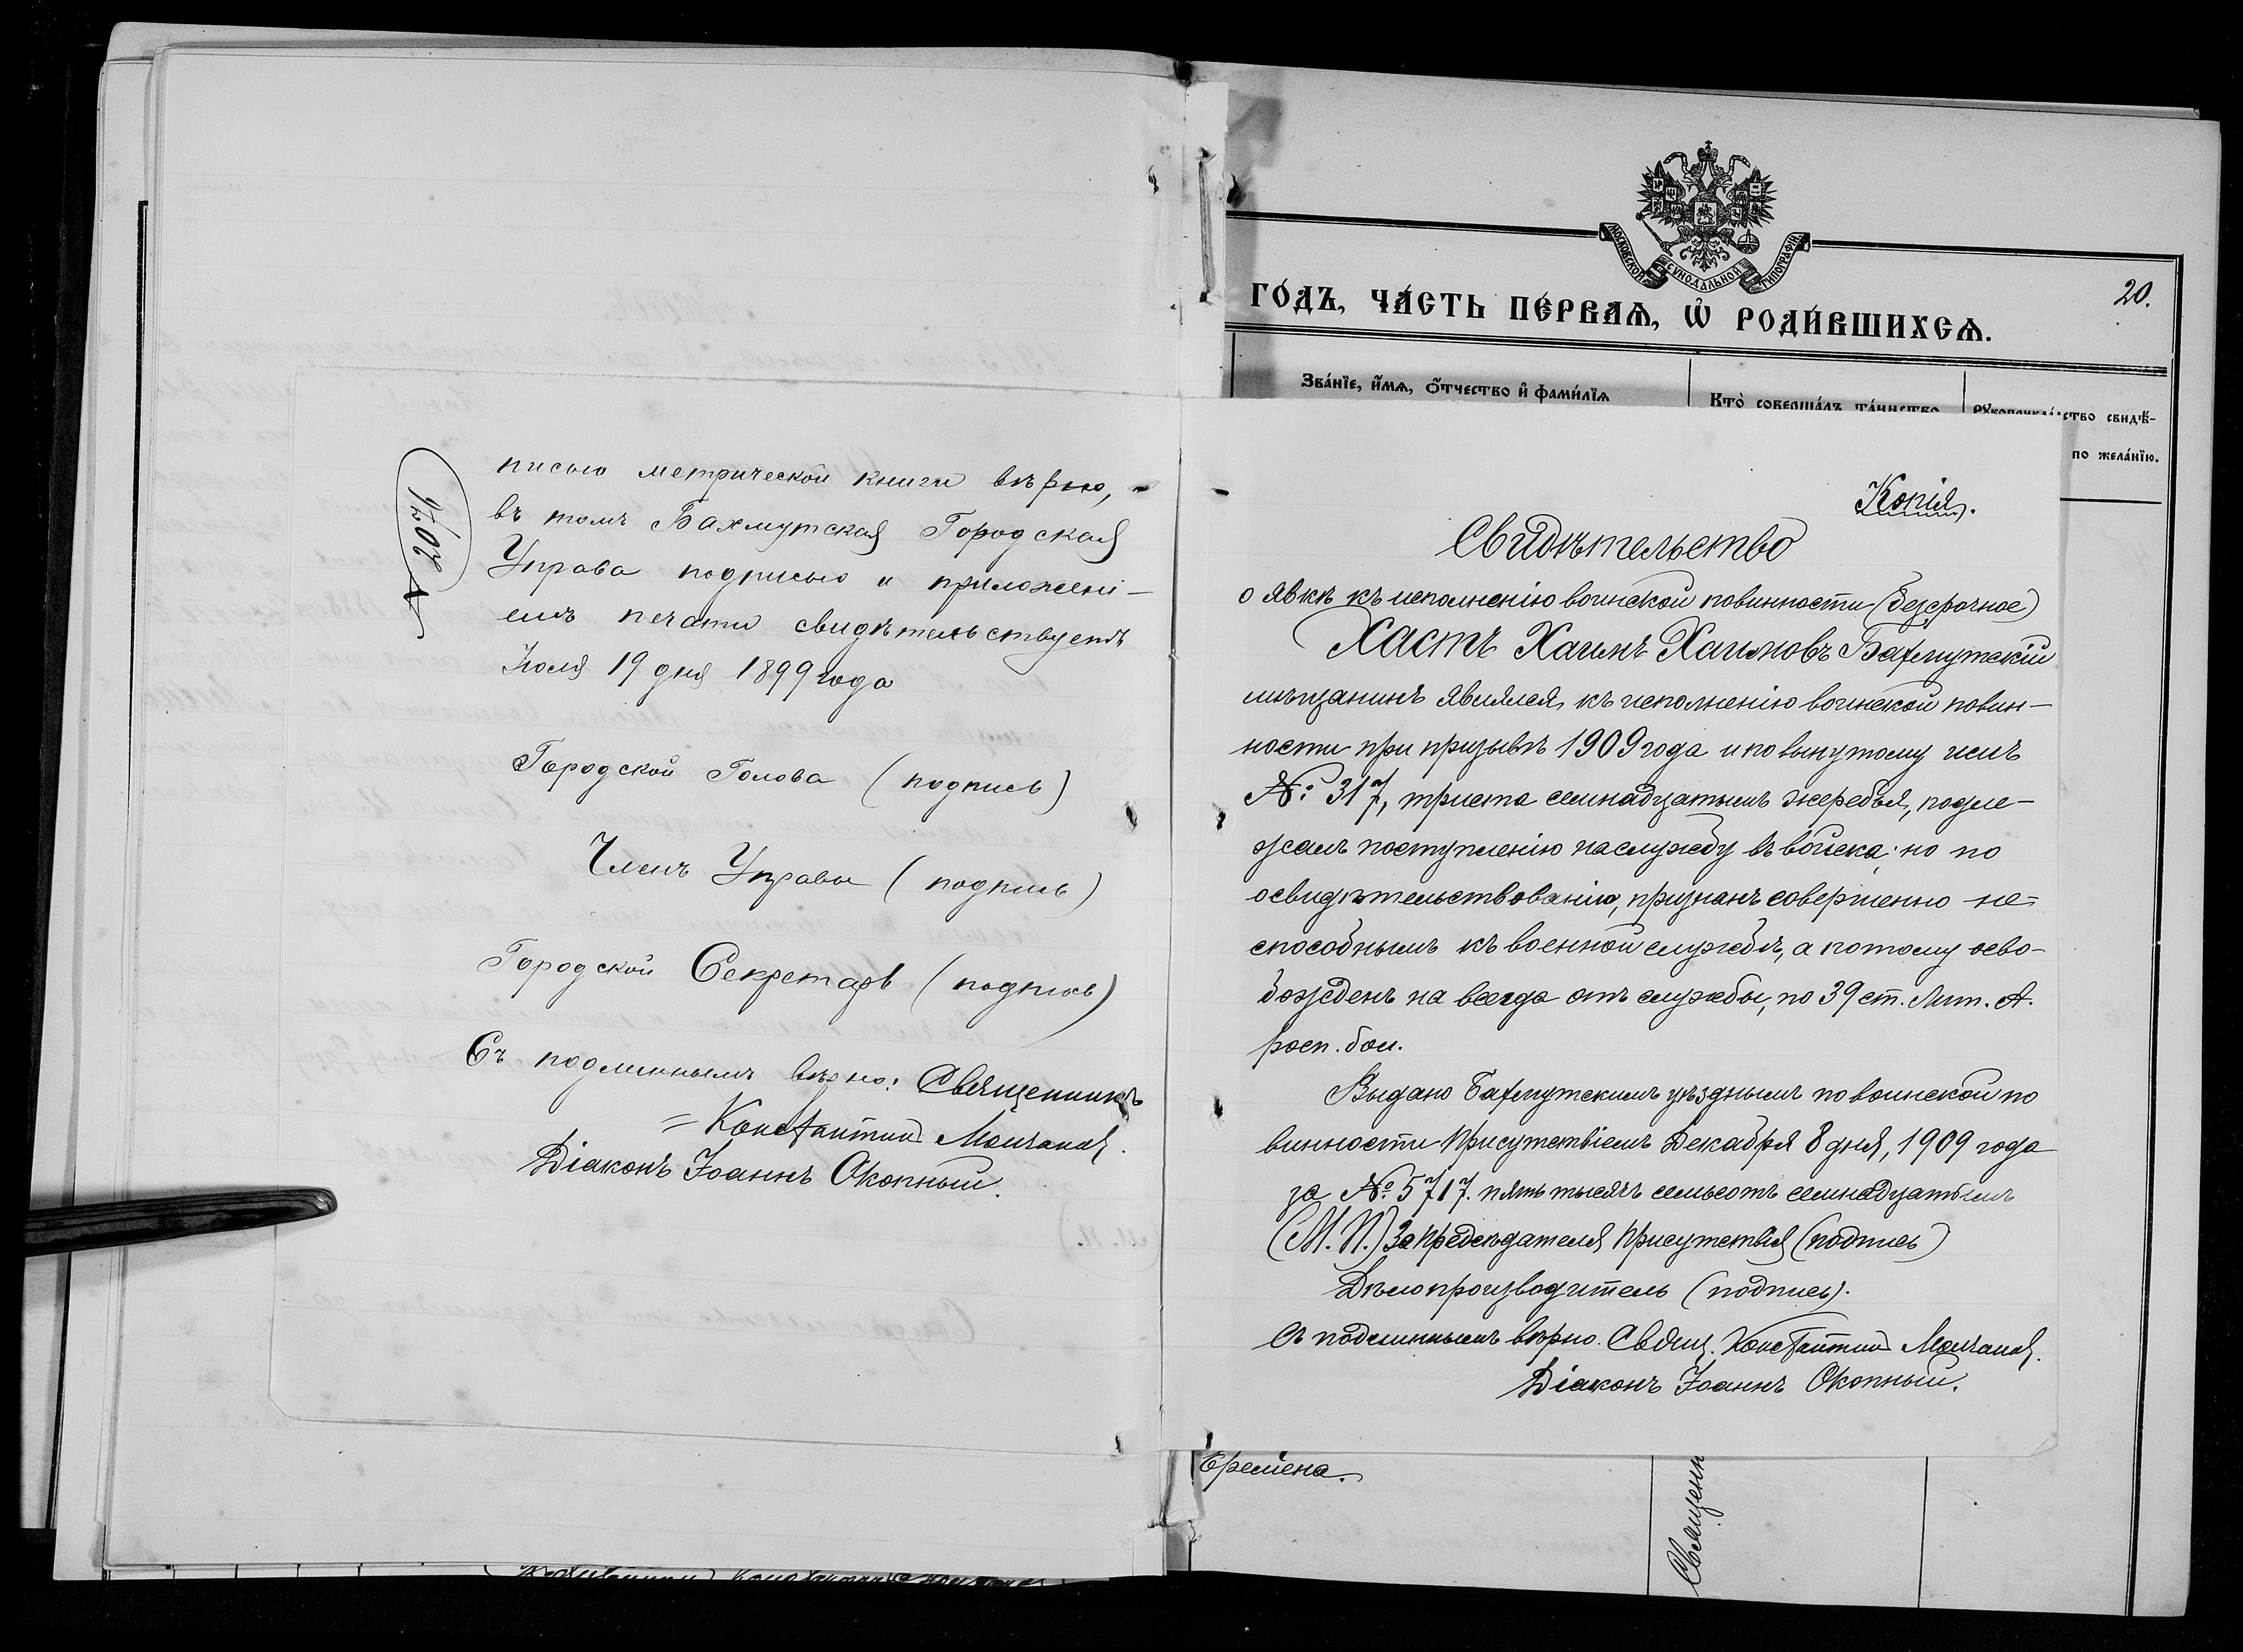 писью метрической книги вѣрно,
въ томъ Бахмутская Городская
Управа подписью и приложені-
емъ печати свидѣтельствуетъ
Іюля 19 дня 1899 года
Городской Голова (подпись)
Членъ Управы (подпись)
Городской Секретарь (подпись)
Съ подлиннымъ вѣрно: Священникъ
= Константинъ Молчановъ.
Діаконъ Іоаннъ Окопный.
МОСКОВСКОЙ СѴНОДАЛЬНОЙ ТИПОГРАФІИ
20.
ГО́ДЪ, ЧА́СТЬ ПЕ́РВАѦ, Ѽ РОДИ́ВШИХСѦ.
Зва́нїе, и҆́мѧ, ѻ҆́тчество и҆ фами́лїѧ
Кто̀ соверша́лъ та́инство
свидѣ-
по жела́нїю.
Копія.
Свидѣтельство
о явкѣ къ исполненію воинской повинности (безсрочное)
Хастъ Хаимъ Хаимовъ Бахмутскій
мѣщанинъ являлся къ исполненію воинской повин-
ности при призывѣ 1909 года и по вынутому имъ
№: 317, триста семнадцатымъ жеребья, подле-
жалъ поступленію на службу въ войска; но по
освидѣтельствованію, признанъ совершенно не=
способнымъ къ военной службѣ, а потому осво-
божденъ на всегда отъ службы, по 39 ст. Лит. А.
росп. бол.
Выдано Бахмутскимъ уѣзднымъ по воинской по
винности Присутствіемъ Декабря 8 дня, 1909 года
за №: 5717. пять тысячъ семьсотъ семнадцатымъ
(М. П.) За предсѣдателя Присутствія (подпись)
Дѣлопроизводитель (подпись).
Съ подлиннымъ вѣрно. Свящ. Константинъ Молчановъ.
Діаконъ Іоаннъ Окопный.
Еремена.
Священн